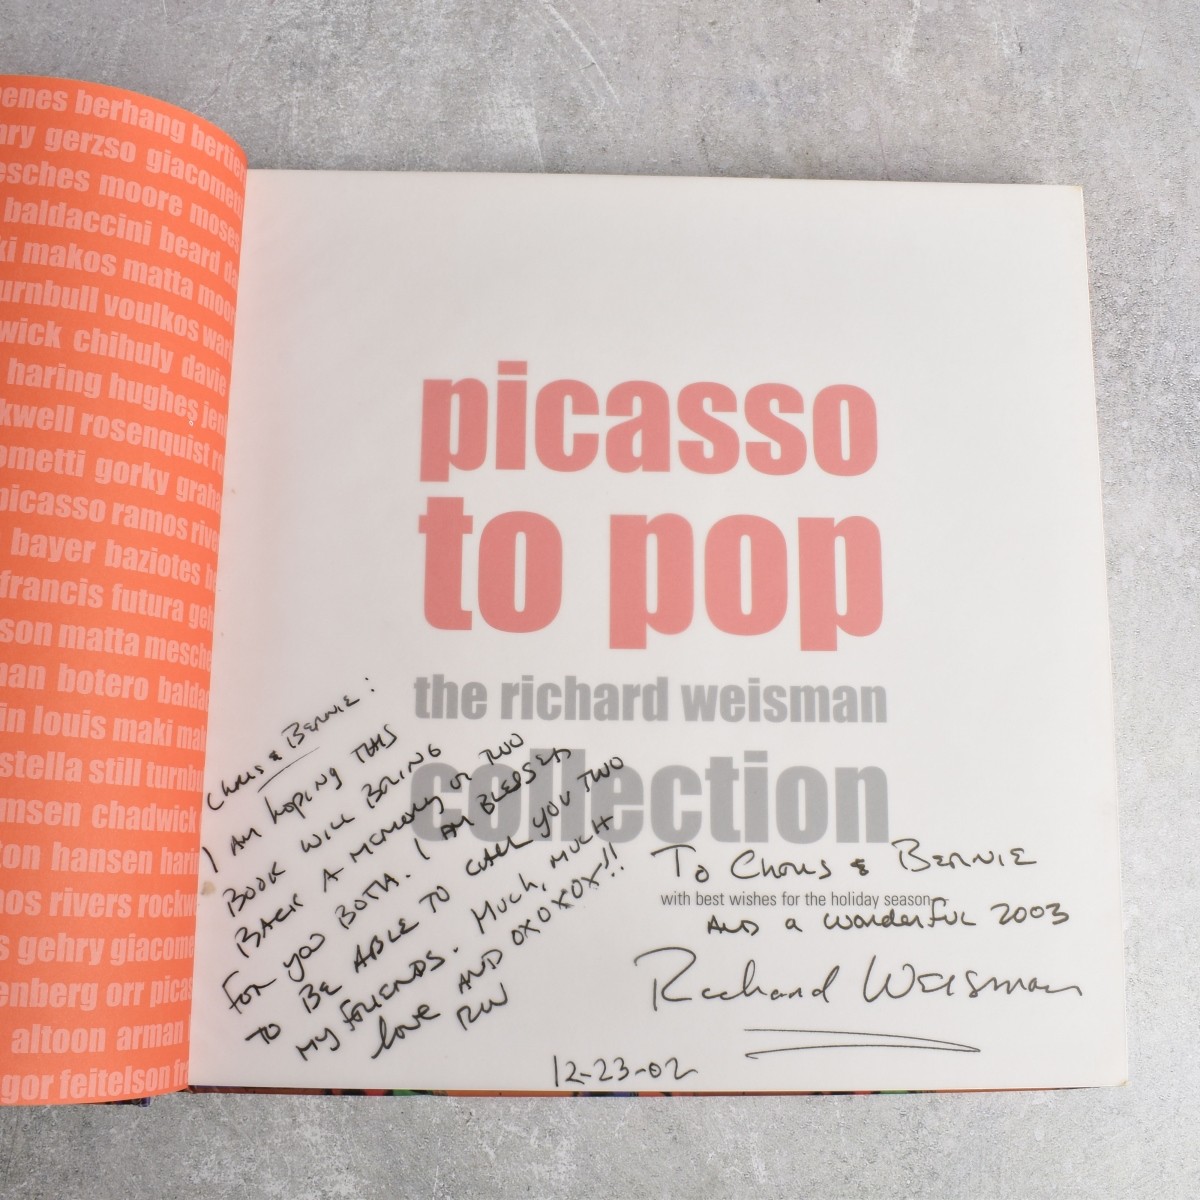 enes berhang
gerzso giacomett
esches moore moses
baldaccini beard da
ki makos matta moor
urnbull voulkos war
wick chihuly davie
haring hughes jen
kwell rosenquist
ometti gorky graha
picasso ramos rive
bayer baziotes
francis futura geh
son matta mesche
nan botero baldac
in louis maki mak
stella still turnb
msen chadwick
ton hansen hari
nos rivers rockw
s gehry giacome
enberg orr picas
altoon arman
gor feitelson
picasso
to pop
the richard weisman
collection
with best wishes for the holiday season
Chris & Bernie:
I am hoping this
book will bring
back a memory or two
for you both. I am blessed
to be able to call you two
my friends. Much, much
love and oxoxox!!
RW
To Chris & Bernie
and a wonderful 2003
Richard Weisman
12-23-02